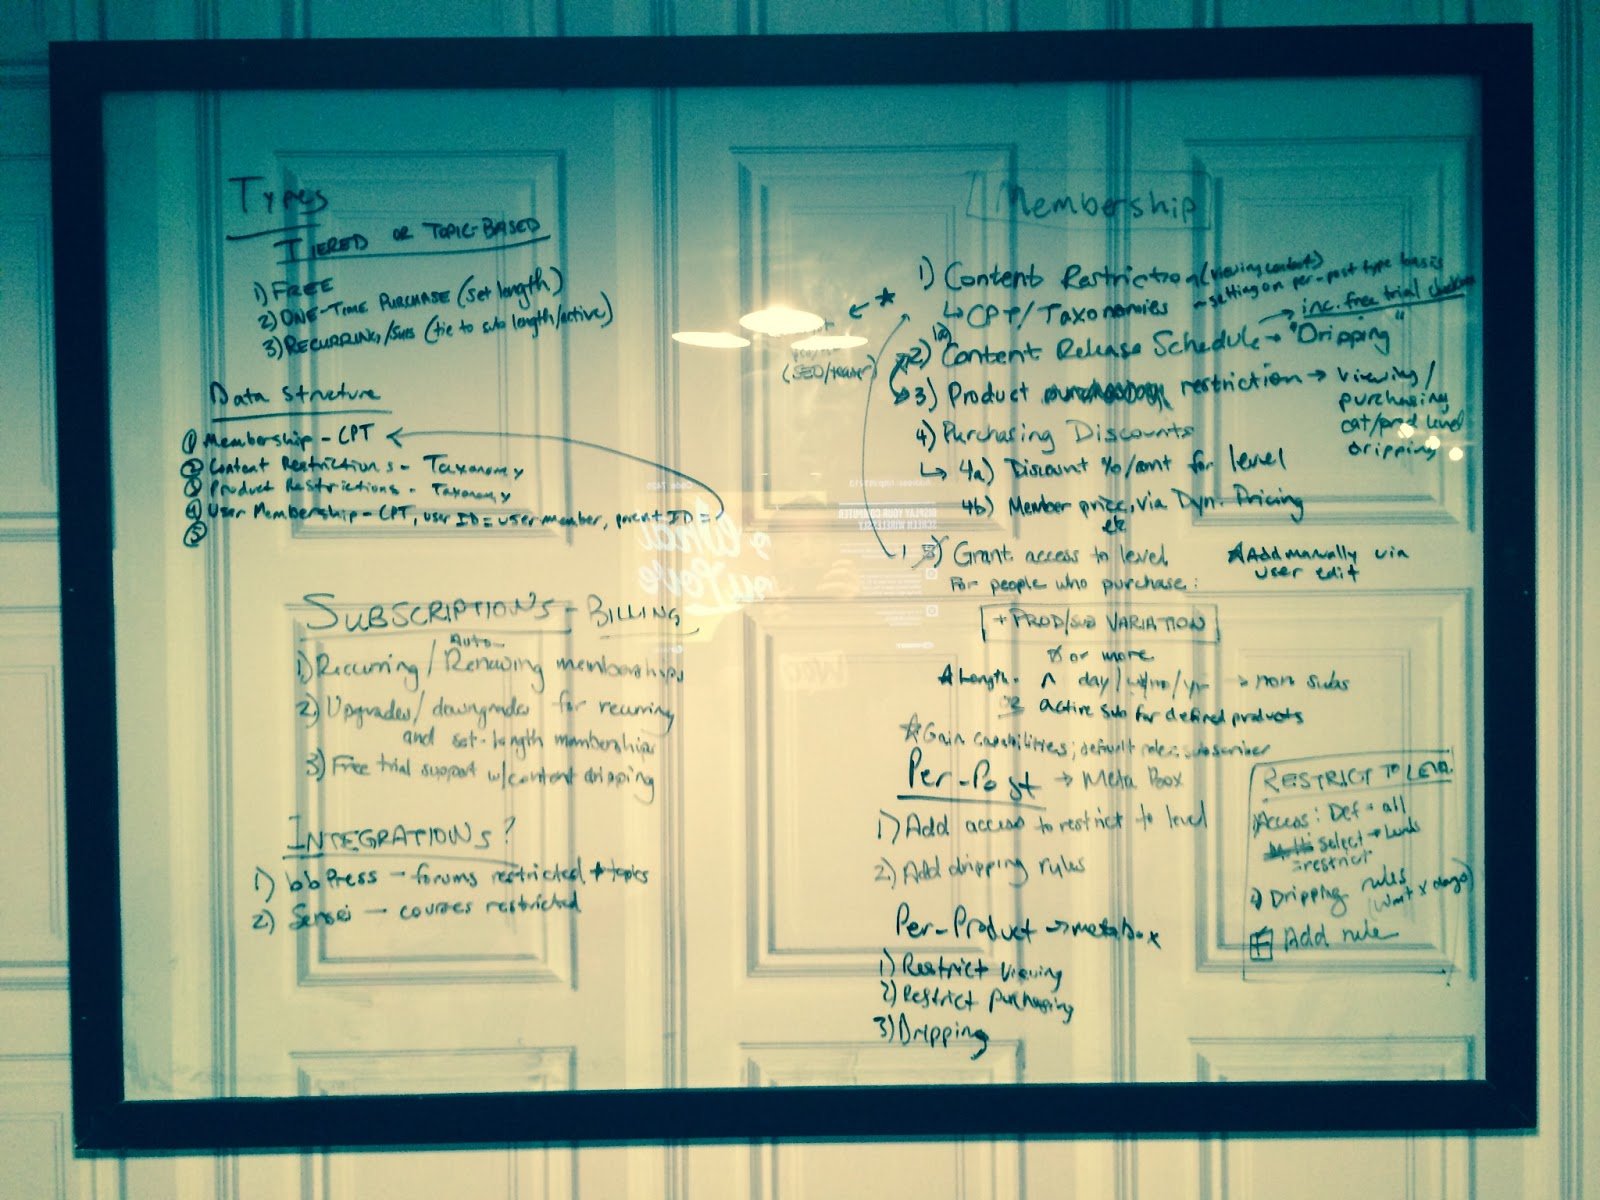 Types
TIERED OR TOPIC-BASED
1) FREE
2) ONE-TIME PURCHASE (set length)
3) RECURRING/SUBS (tie to sub length/active)
Data Structure
1 Membership - CPT
2 Content Restrictions - Taxonomy
3 Product Restrictions - Taxonomy
4 User Membership - CPT, user ID = user member, parent ID =
5
SUBSCRIPTIONS - BILLING
Auto-
1) Recurring / Renewing memberships
2) Upgrades/downgrades for recurring
and set-length memberships
3) Free trial support w/content dripping
INTEGRATIONS?
1) bbPress - forums restricted, + topics
2) Sensei - courses restricted
Membership
1) Content Restriction (viewing content)
- setting on per-post type basis
↳ CPT/Taxonomies
→ inc. free trial
← *
(SEO/teaser)
1a)
2) Content Release Schedule → "Dripping"
3) Product restriction → viewing/
purchasing
cat/prod level
dripping
4) Purchasing Discounts
↳ 4a) Discount %/amt for level
4b) Member price, via Dyn. Pricing
etc
1 Grant access to level
For people who purchase:
☆ Add manually via
user edit
+ PROD/SUB VARIATION
or more
☆ Length - n day/wk/mo/yr → non subs
OR active sub for defined products
☆ Gain capabilities; default role: subscriber
Per-Post → Meta Box
1) Add access to restrict to level
2) Add dripping rules
Per-Product → metabox
1) Restrict viewing
2) Restrict purchasing
3) Dripping
RESTRICT TO LEVEL
1) Access: Def = all
select → Levels
= restrict
2) Dripping rules
(wait x days)
+ Add rule
DISPLAY YOUR COMPUTER
SCREEN WIRELESSLY